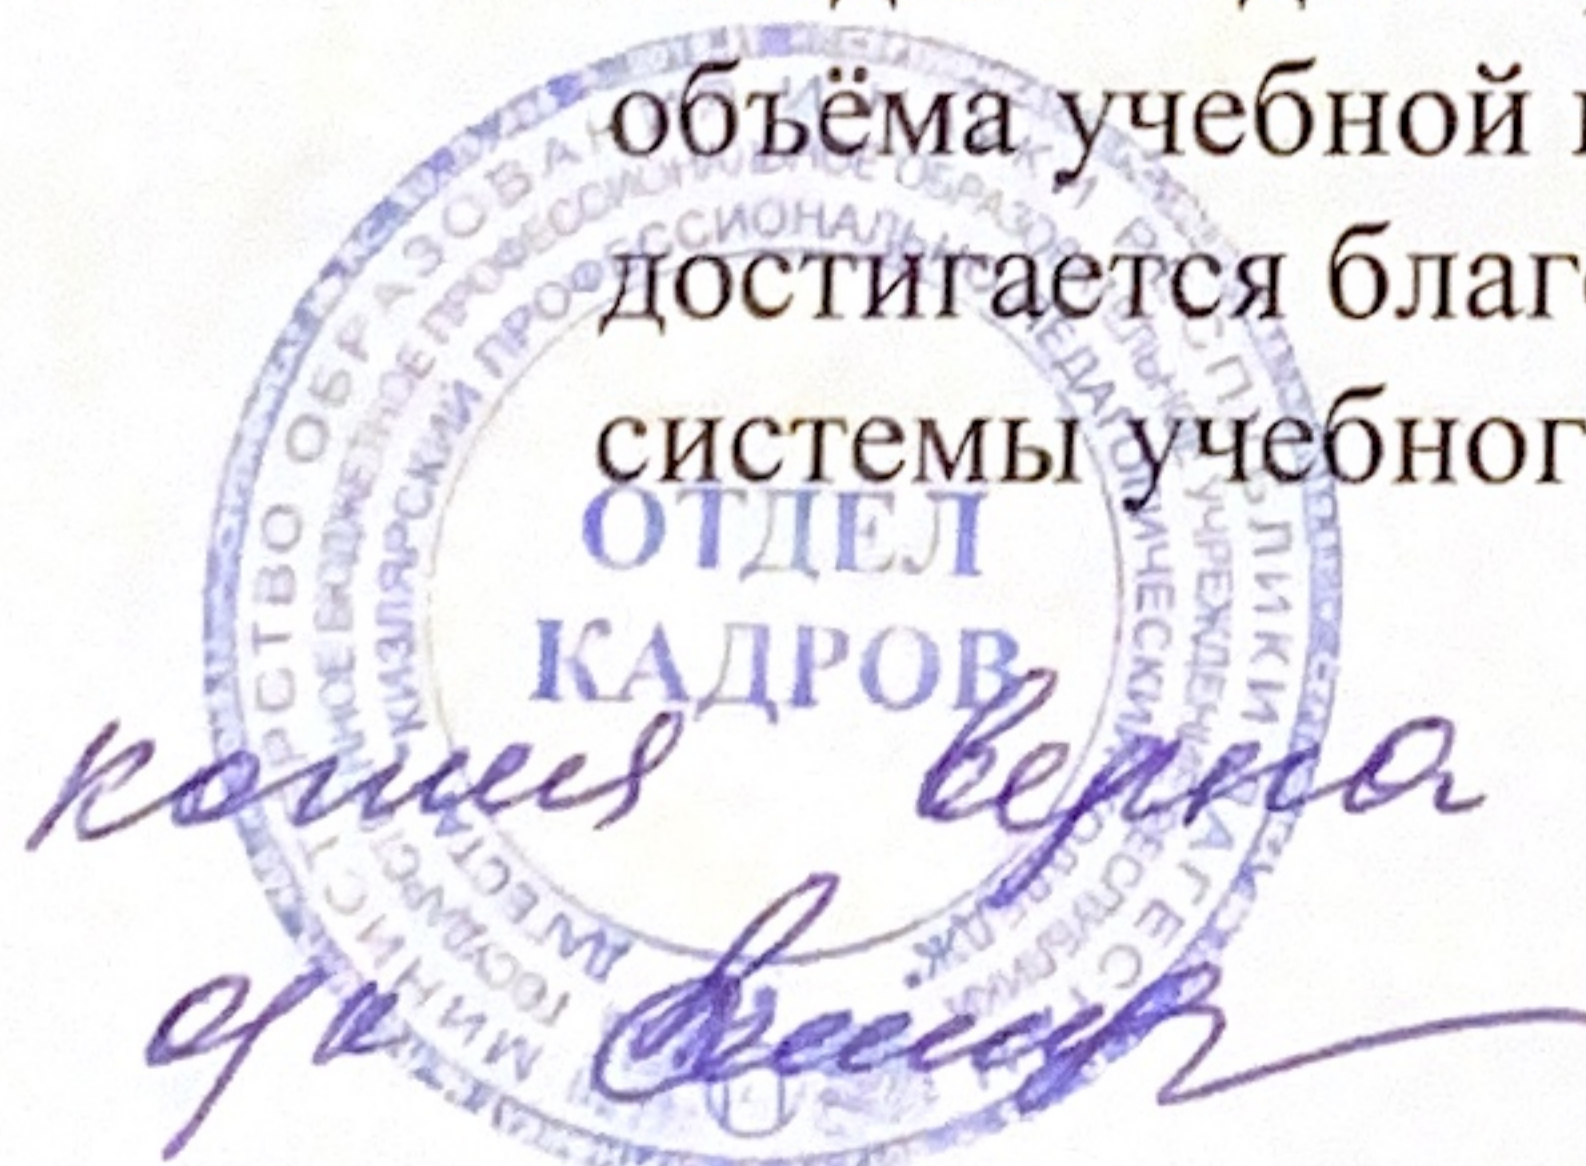 объёма учебной
достигается
системы
МИНИСТЕРСТВО ОБРАЗОВАНИЯ И НАУКИ РЕСПУБЛИКИ ДАГЕСТАН
ГОСУДАРСТВЕННОЕ БЮДЖЕТНОЕ ПРОФЕССИОНАЛЬНОЕ ОБРАЗОВАТЕЛЬНОЕ УЧРЕЖДЕНИЕ РЕСПУБЛИКИ
ДАГЕСТАН КИЗЛЯРСКИЙ ПРОФЕССИОНАЛЬНО-ПЕДАГОГИЧЕСКИЙ КОЛЛЕДЖ
ОТДЕЛ
КАДРОВ
копия верна